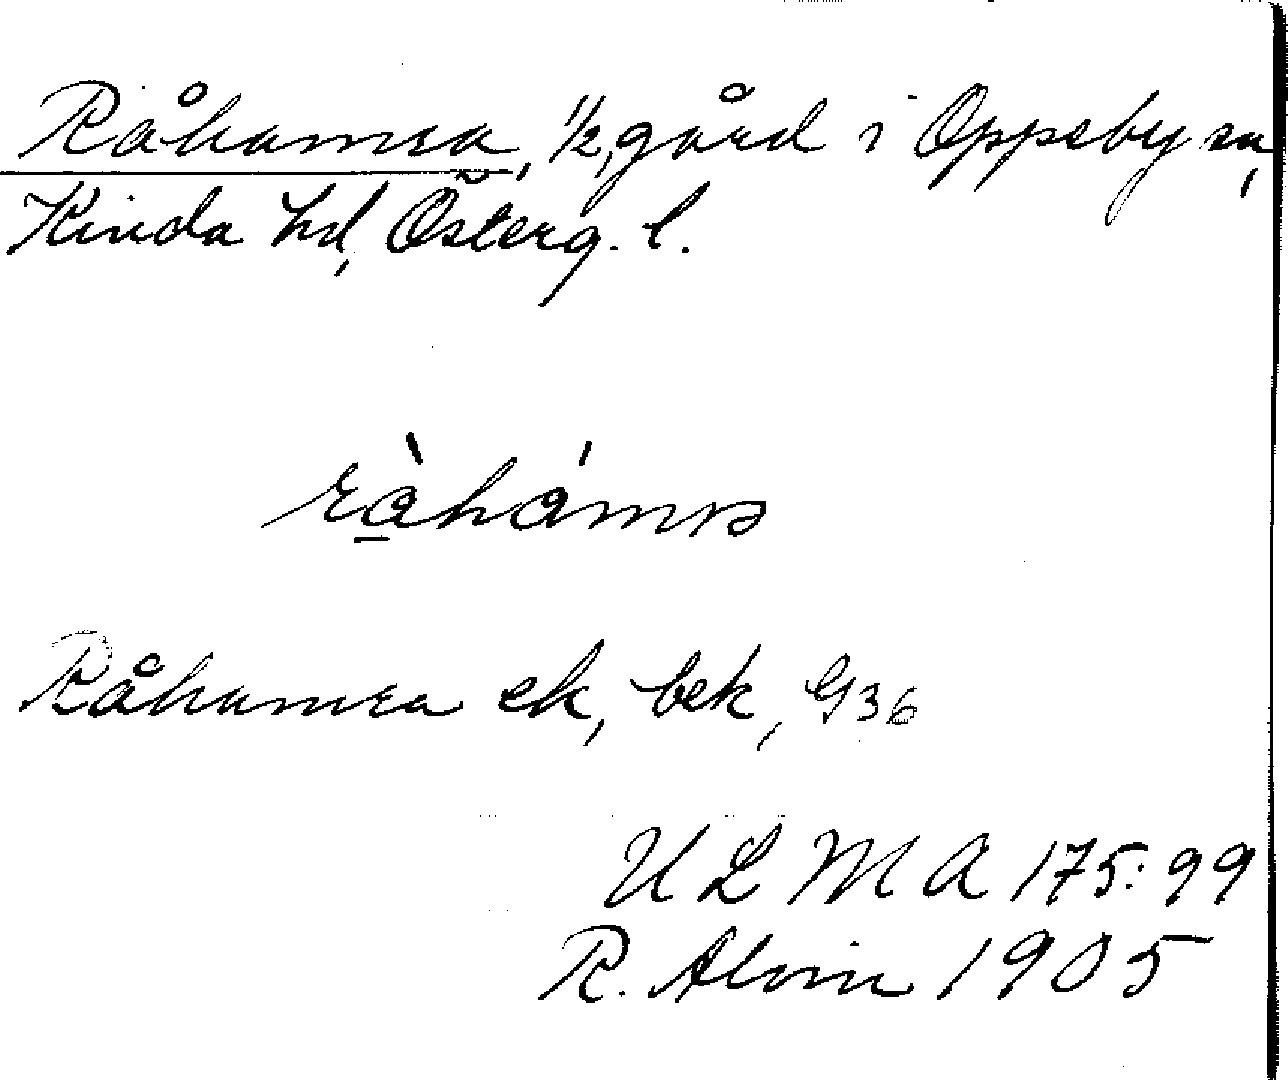 Råhamra, 1/2, gård i Oppeby sn,
Kinda hd, Österg. l.
ràhámrə
Råhamra ek, bek, G36
ULMA 175:99
R. Alvin 1905